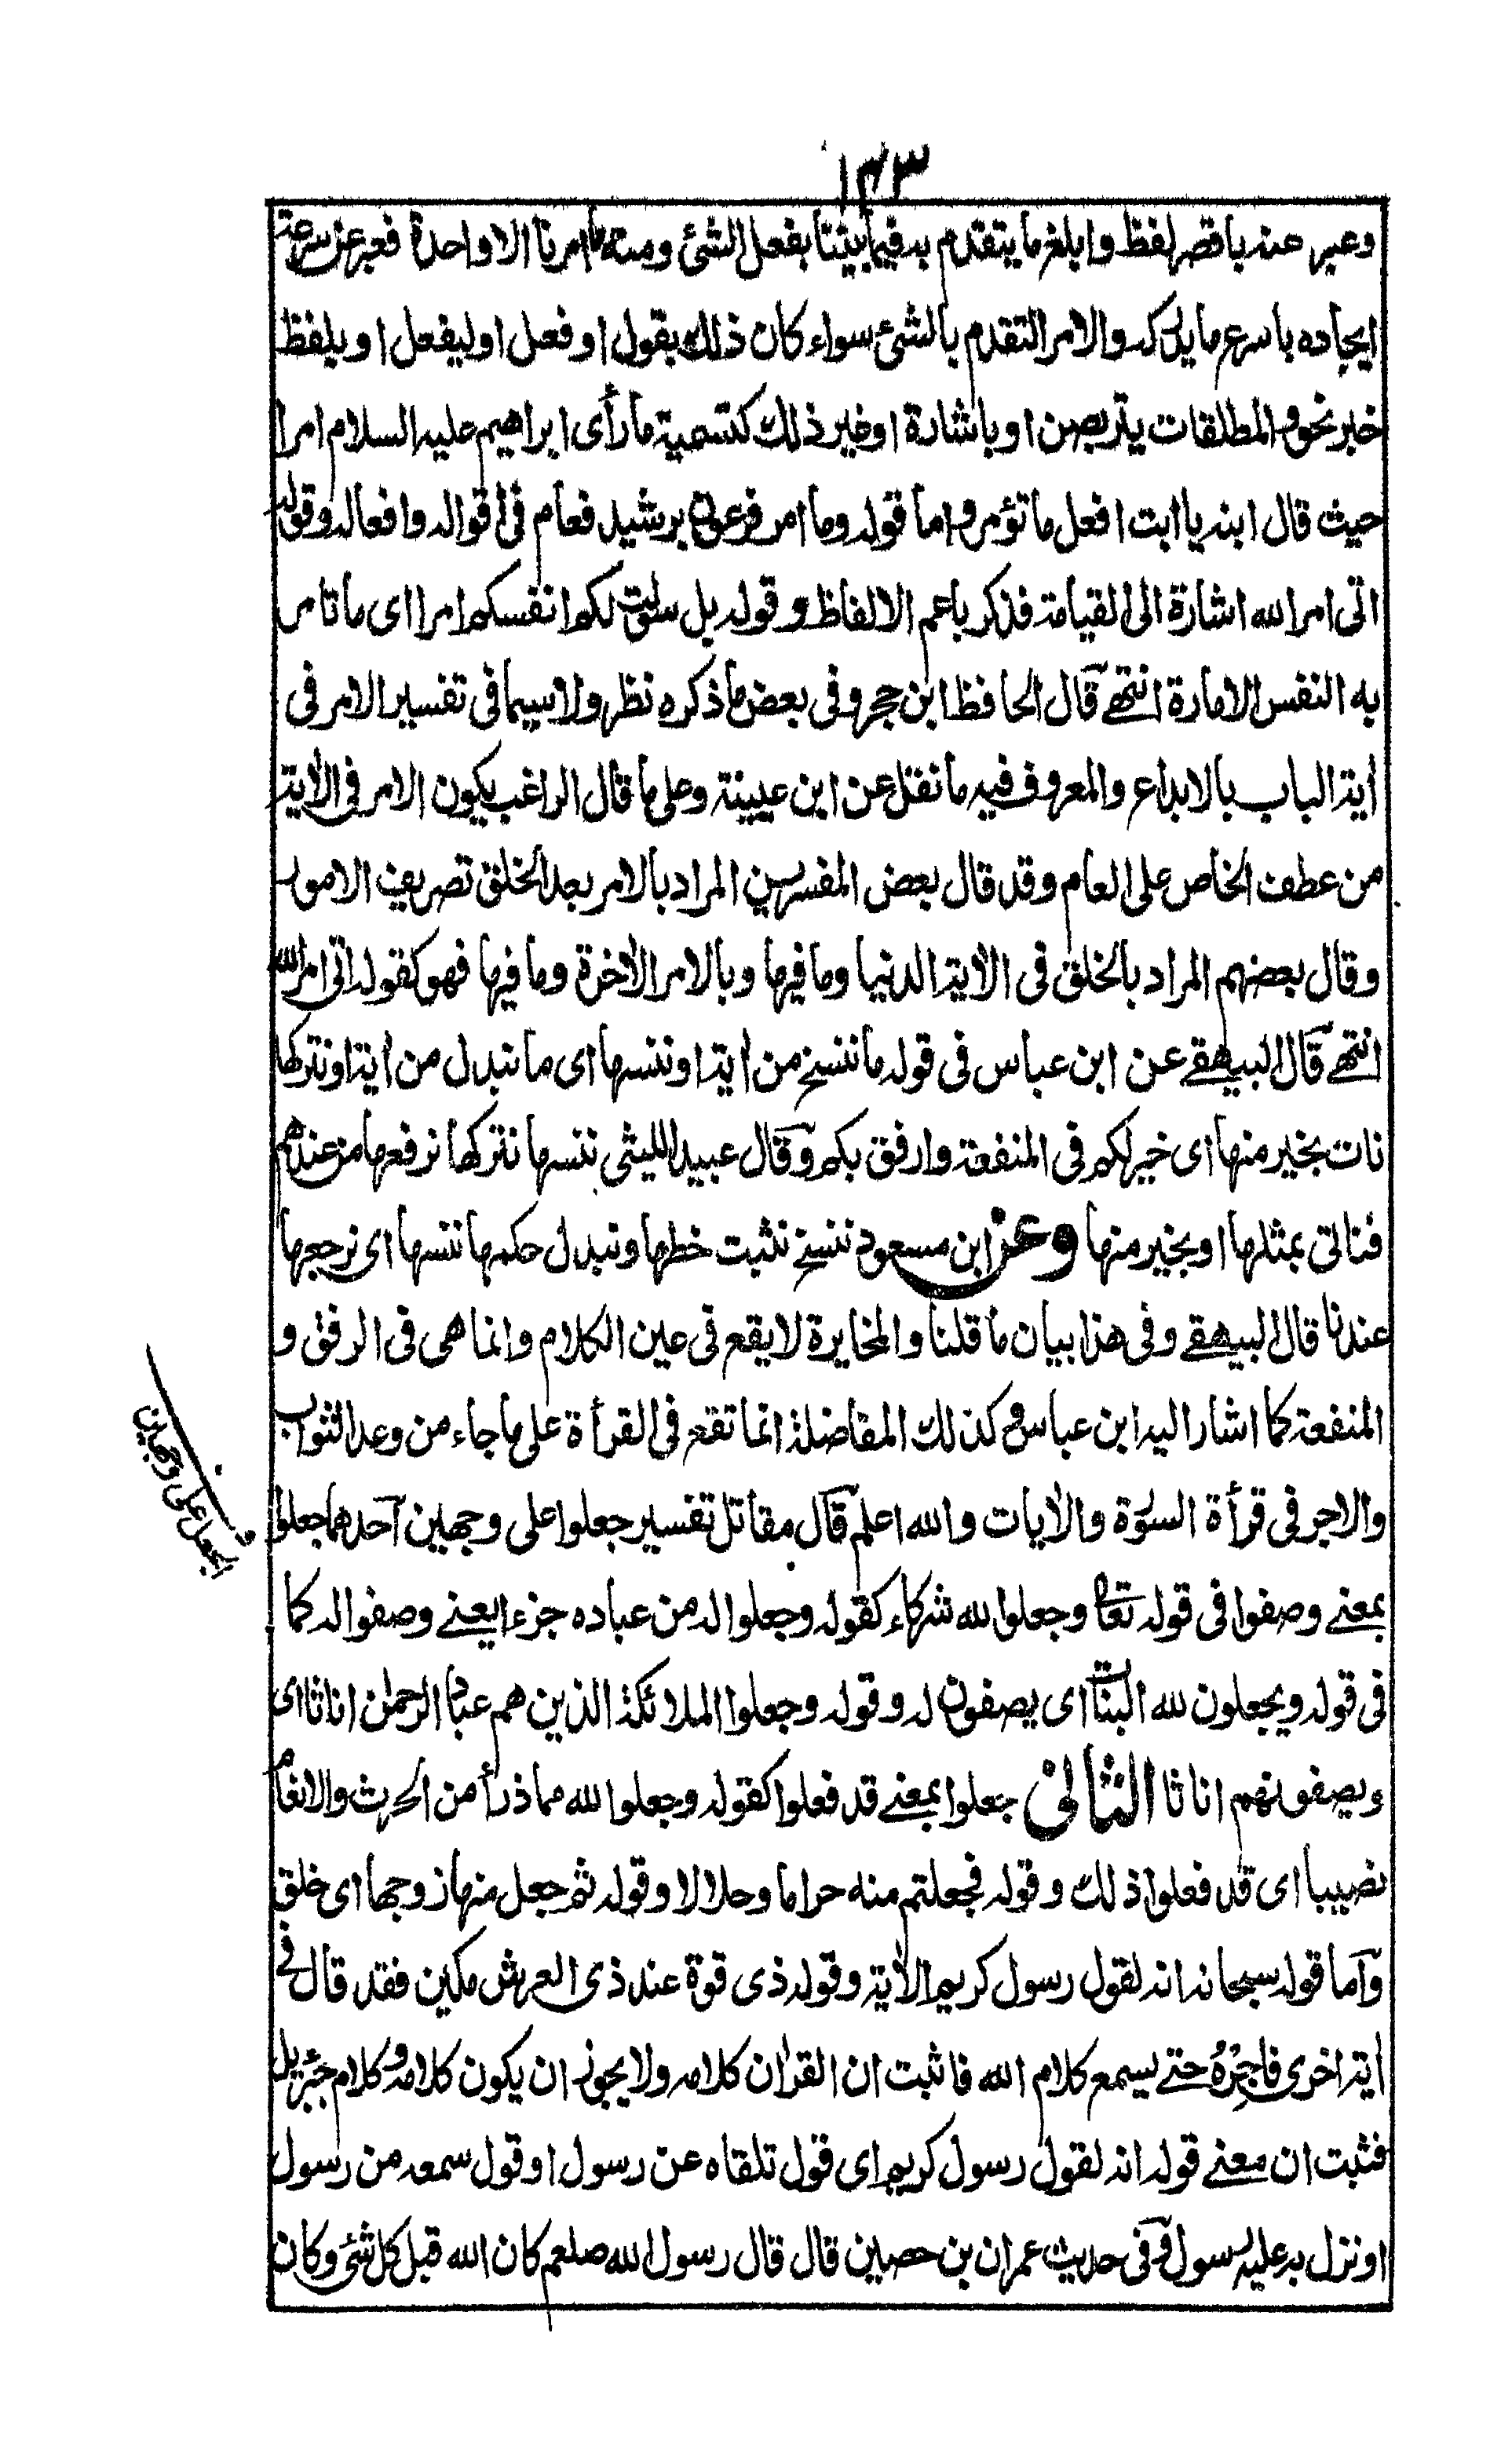 ١٣٣
وعبر عنه باقصر لفظ وابلغ ما يتقدم به فيما بيننا بفعل الشئ ومنه ما امرنا الا واحدة فعبر عن سرعة
ايجاده باسرع ما يدركه والامر التقدم بالشئ سواء كان ذلك بقول او فعل او ليفعل او بلفظ
خبر نحو والمطلقات يتربصن او باشارة او غير ذلك كتسمية ما رأى ابراهيم عليه السلام امرا
حيث قال ابنه يا ابت افعل ما تؤمر واما قوله وما امر فرعون برشيد فعام فى اقواله وافعاله وقوله
اتى امر الله اشارة الى القيامة فذكر باعم الالفاظ وقوله بل سولت لكم انفسكم امرا اى ما تامر
به النفس الامارة انتهى قال الحافظ ابن حجر وفى بعض ما ذكره نظر ولا سيما فى تفسير الامر فى
اية الباب بالابداع والمعروف فيه ما نقل عن ابن عيينة وعلى ما قال الراغب يكون الامر فى الاية
من عطف الخاص على العام وقد قال بعض المفسرين المراد بالامر بعد الخلق تصريف الامور
وقال بعضهم المراد بالخلق فى الاية الدنيا وما فيها وبالامر الاخرة وما فيها فهو كقوله اتى امر الله
انتهى قال البيهقى عن ابن عباس فى قوله ما ننسخ من اية او ننسها اى ما نبدل من اية او نتركها
نات بخير منها اى خير لكم فى المنفعة وارفق بكم وقال عبيد الليثى ننسها نتركها نرفعها من عندهم
فناتى بمثلها او بخير منها وعن ابن مسعود ننسخ نثبت خطها ونبدل حكمها ننسها اى نرجعها
عندنا قال البيهقى وفى هذا بيان ما قلنا والمخايرة لا يقع فى عين الكلام وانما هى فى الرفق و
المنفعة كما اشار اليه ابن عباس وكذلك المفاضلة انما تقع فى القرأة على ما جاء من وعد الثواب
والاجر فى قرأة السورة والايات والله اعلم قال مقاتل تفسير جعلوا على وجهين احدهما جعلوا
بمعنى وصفوا فى قوله تعالى وجعلوا لله شركاء كقوله وجعلوا له من عباده جزءا يعنى وصفوا له كما
فى قوله ويجعلون لله البنات اى يصفون له وقوله وجعلوا الملائكة الذين هم عباد الرحمن اناثا اى
ويصفونهم اناثا الثانى جعلوا بمعنى قد فعلوا كقوله وجعلوا لله مما ذرأ من الحرث والانعام
نصيبا اى قد فعلوا ذلك وقوله فجعلتم منه حراما وحلالا وقوله ثم جعل منها زوجها اى خلق
واما قوله سبحانه انه لقول رسول كريم الاية وقوله ذى قوة عند ذى العرش مكين فقد قال فى
اية اخرى فاجره حتى يسمع كلام الله فاثبت ان القران كلامه ولا يجوز ان يكون كلامه وكلام جبرئيل
فثبت ان معنى قوله انه لقول رسول كريم اى قول تلقاه عن رسول او قول سمعه من رسول
او نزل به عليه رسول وفى حديث عمران بن حصين قال قال رسول الله صلعم كان الله قبل كل شئ وكان
الجعل على وجهين